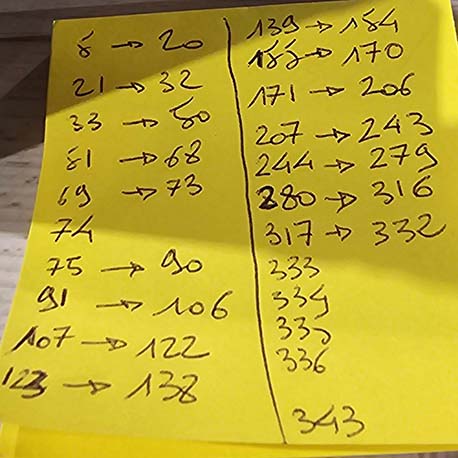 5 → 20
21 → 32
33 → 50
51 → 68
69 → 73
74
75 → 90
91 → 106
107 → 122
123 → 138
139 → 154
155 → 170
171 → 206
207 → 243
244 → 279
280 → 316
317 → 332
333
334
335
336
343